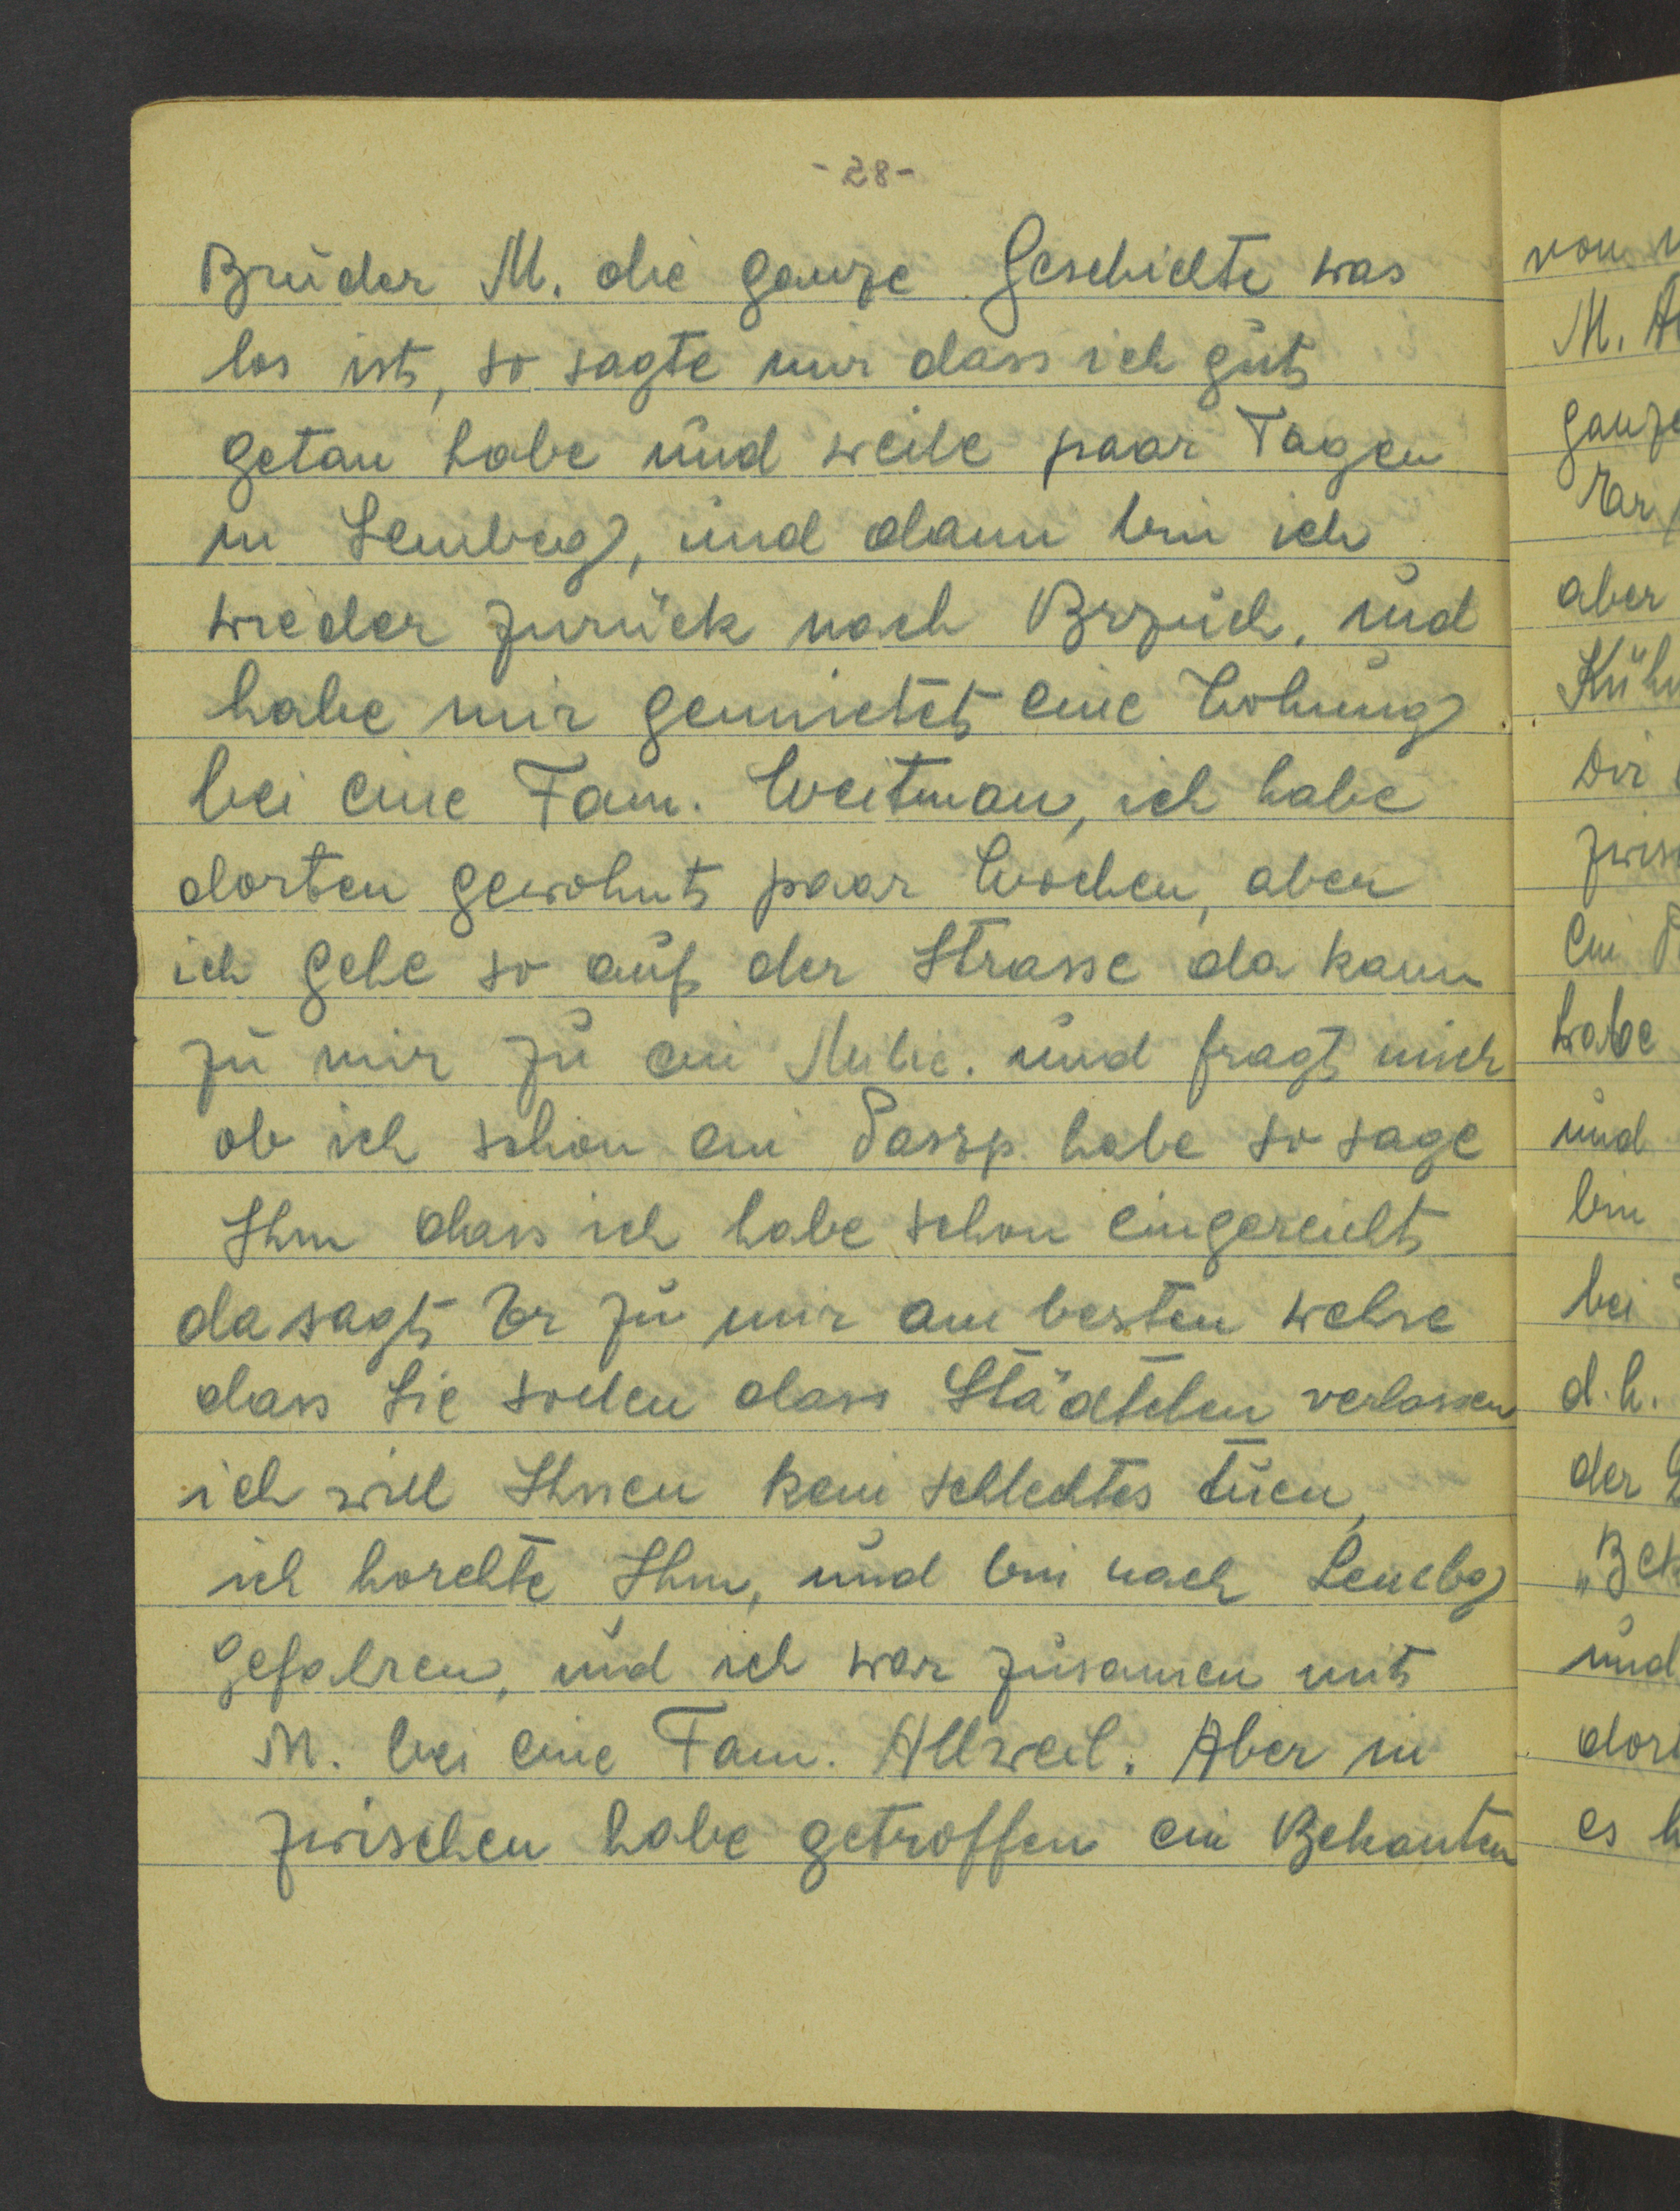 - 28 -
Bruder M. die ganze Geschichte was
los ist, so sagte mir dass ich gut
getan habe und weile paar Tagen
in Lemberg, und dann bin ich
wieder zurück nach Brzuch. und
habe mir gemietet eine Wohnung
bei eine Fam. Weitman, ich habe
dorten gewohnt paar Wochen, aber
ich gehe so auf der Strasse da kam
zu mir zu ein und fragt mich
ob ich schon ein Passp. habe so sage
Ihm dass ich habe schon eingereicht
da sagt Er zu mir am besten
dass Sie sollen dass Städtchen verlassen
ich will Ihnen kein schlechtes tuen,
ich horchte Ihm, und bin nach Lembg
gefahren, und ich war zusamen mit
M. bei eine Fam. Allweil. Aber in
zwischen habe getroffen ein Bekanten
von
M.
ganze
Er
aber
Dir
zwisc
ein
habe
und
bin
bei
d.h.
der
und
dort
es